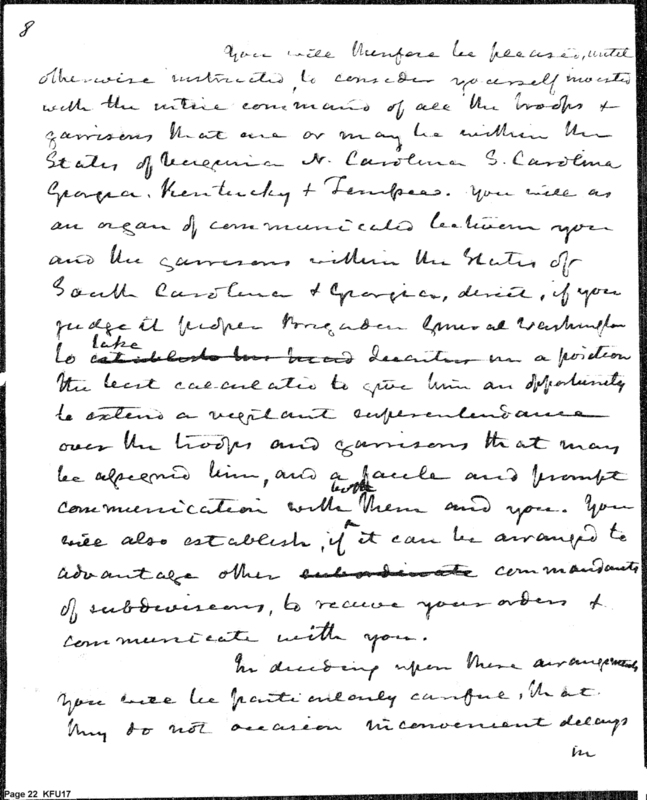 8
You will therefore be pleased, until
otherwise instructed, to consider yourself invested
with the intire command of all the troops &
garrisons that are or may be within the
States of Verginia N. Carolina S. Carolina
Georgia. Kentucky & Tennessee. You will as
an organ of communicated between you
and the garrisons within the States of
South Carolina & Georgia, direct, if you
judge it proper Brigadier General Washington
to take establish his head in a position
the best calculated to give him an opportunity
to extend a vigilant superentendance
over the troops and garrisons that may
be assigned him, and a facile and prompt
communication with both them and you. You
will also establish, if it can be arranged to
advantage other subordinate commandants
of subdiviscons, to receive your orders &
communicate with you.
In deciding upon these arrangements
you will be particularly careful, that
they do not occasion inconvenient delays
in
Page 22 KFU17